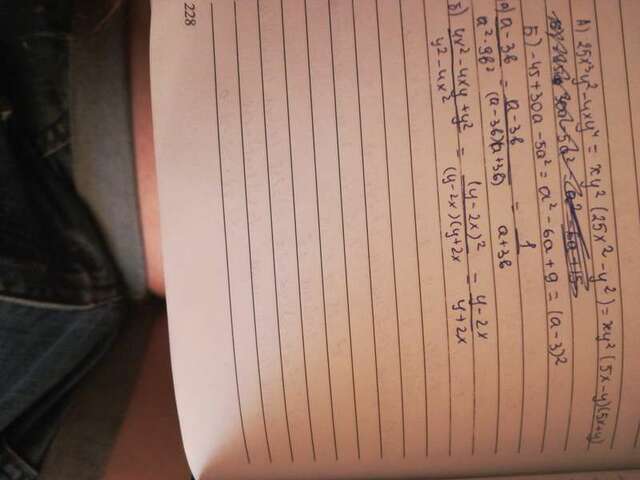 А) 25x³y²-4xy⁴ = xy²(25x²-y²) = xy²(5x-y)(5x+y)
Б) -45+30a-5a² = a²-6a+9 = (a-3)²
а) a-3b / a²-9b² = a-3b / (a-3b)(a+3b) = 1 / a+3b
Б) 4x²-4xy+y² / y²-4x² = (y-2x)² / (y-2x)(y+2x = y-2x / y+2x
228